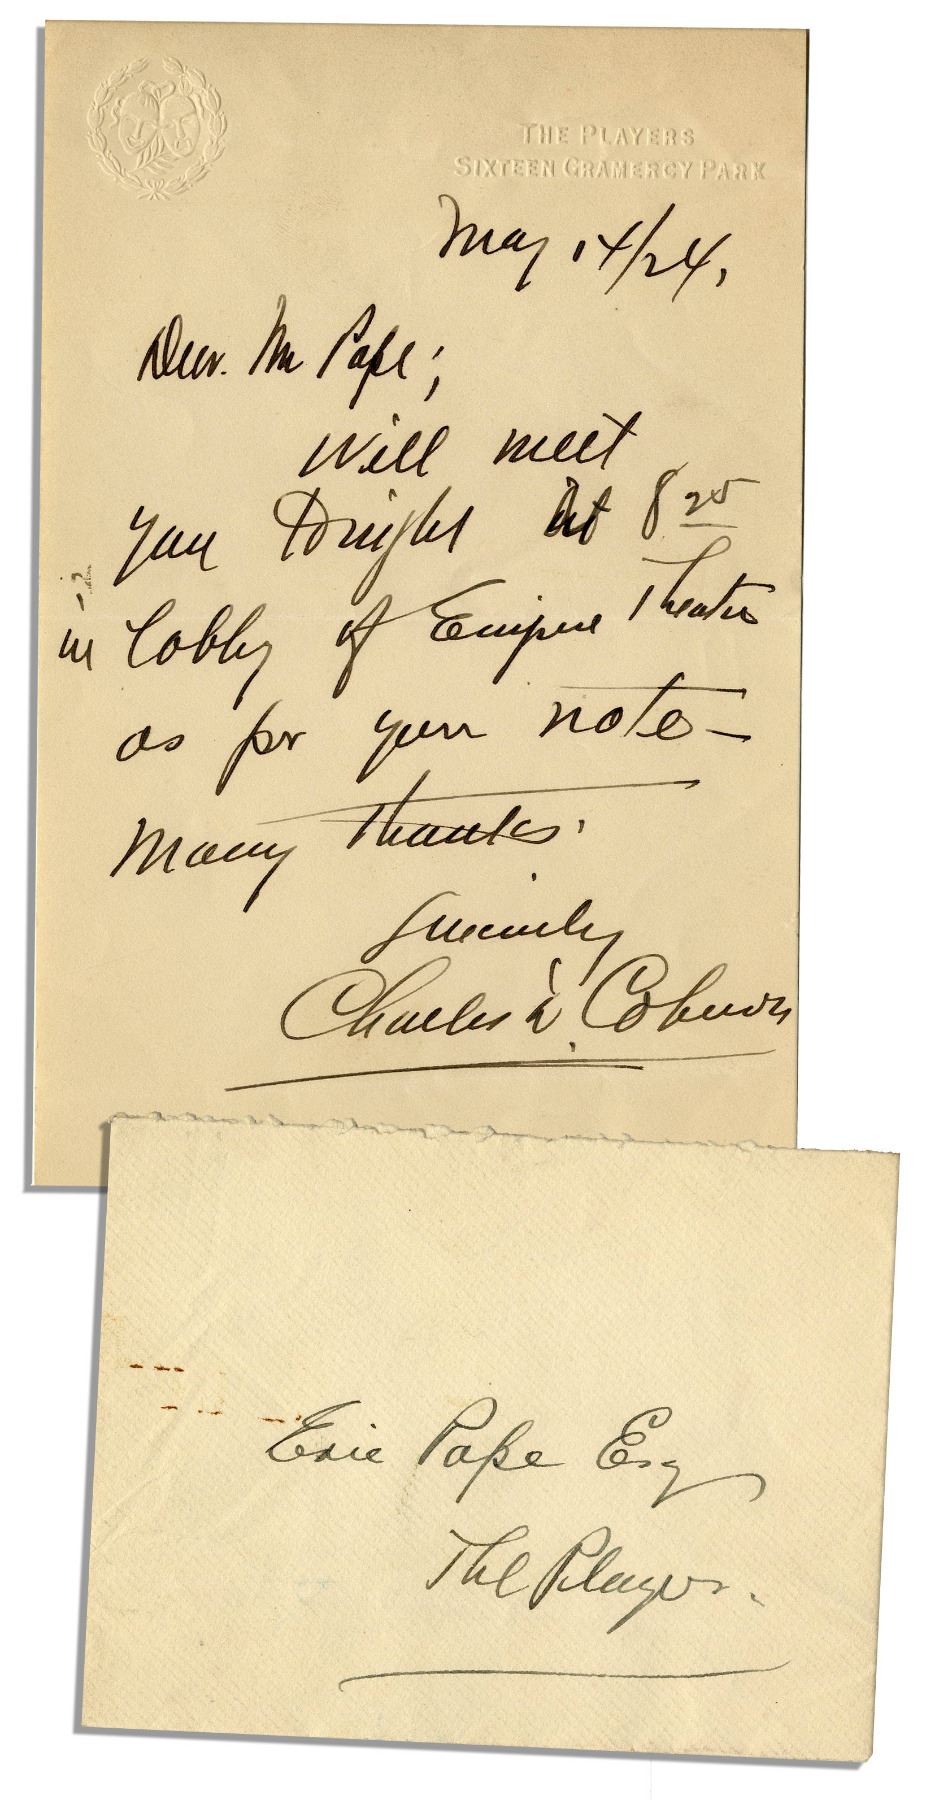 THE PLAYERS
SIXTEEN GRAMERCY PARK
May 14/24,
Dear Mr Pape;
Will meet
you tonight at 8 25
in lobby of Empire Theatre
as per your note—
Many thanks.
Sincerely
Charles D. Coburn
Eric Pape Esq
The Players.